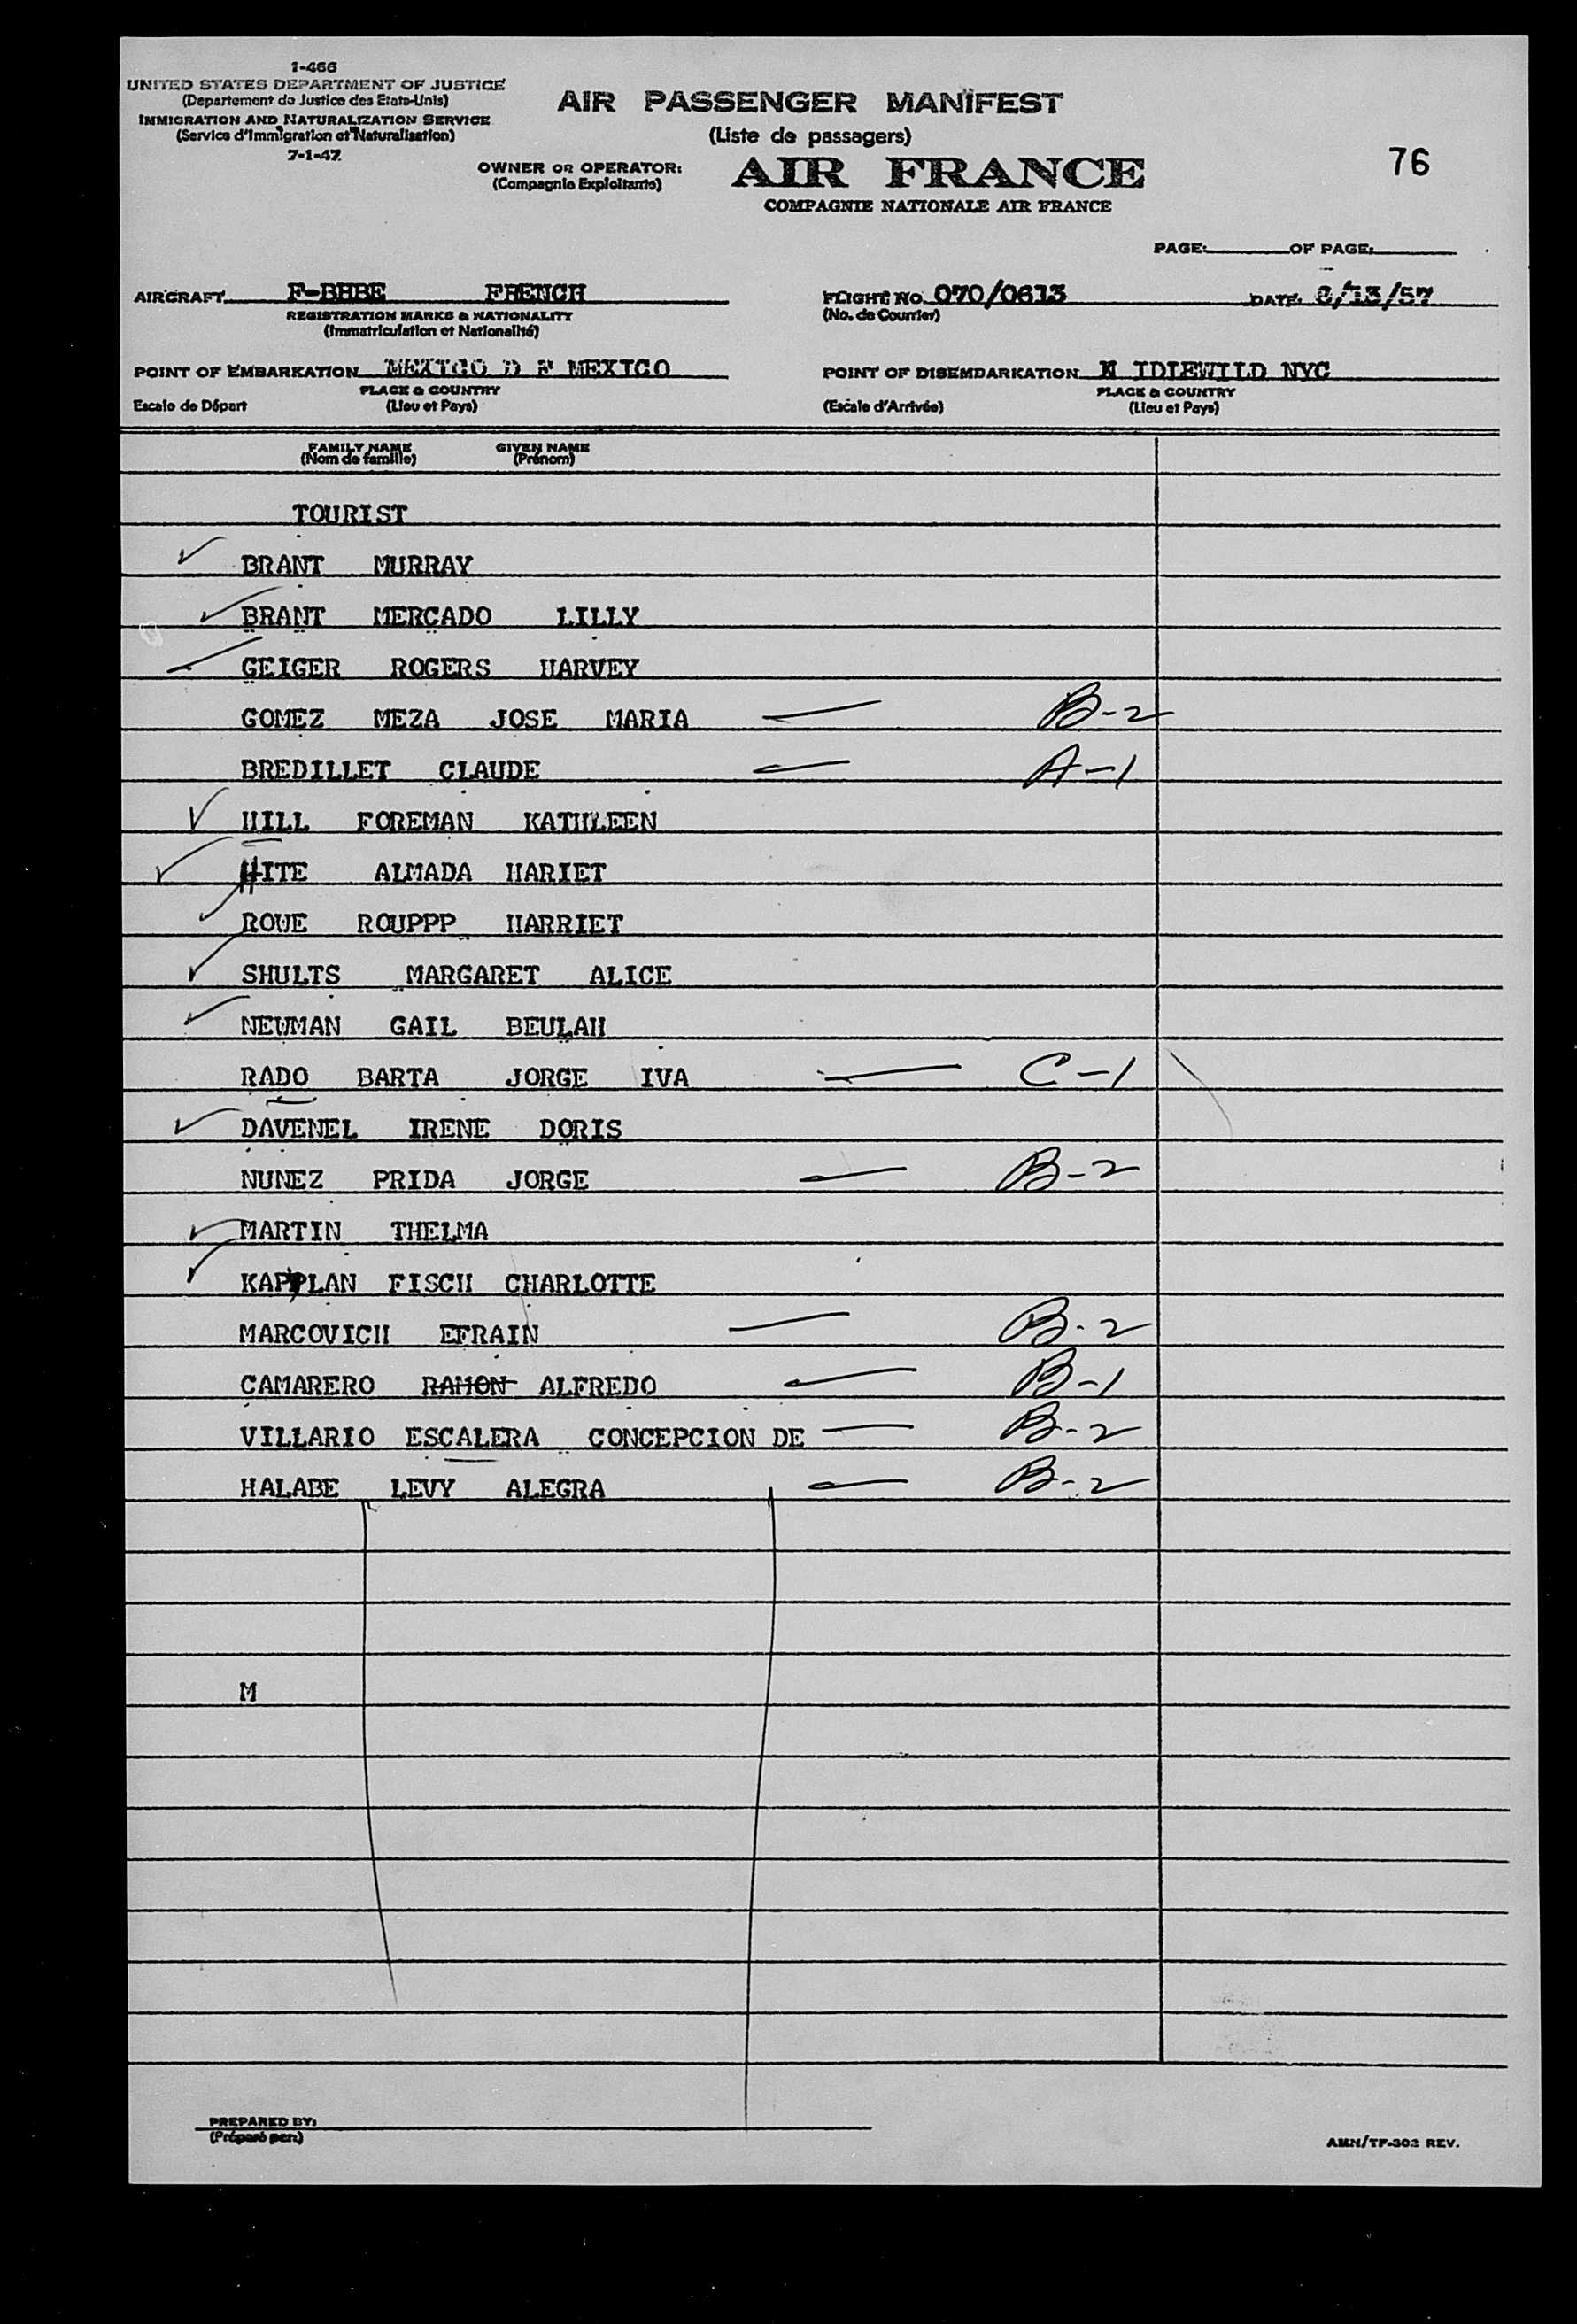 1-466
UNITED STATES DEPARTMENT OF JUSTICE
(Departement de Justice des Etats-Unis)
IMMIGRATION AND NATURALIZATION SERVICE
(Service d'Immigration et Naturalisation)
7-1-47
AIR PASSENGER MANIFEST
(Liste de passagers)
OWNER OR OPERATOR:
(Compagnie Exploitante)
AIR FRANCE
COMPAGNIE NATIONALE AIR FRANCE
76
PAGE: OF PAGE:
AIRCRAFT F-BHBE FRENCH FLIGHT NO. 070/0613 DATE: /13/57
REGISTRATION MARKS & NATIONALITY (No. de Courrier)
(Immatriculation et Nationalité)
POINT OF EMBARKATION MEXICO D F MEXICO POINT OF DISEMBARKATION N IDLEWILD NYC
PLACE & COUNTRY PLACE & COUNTRY
Escale de Départ (Lieu et Pays) (Escale d'Arrivée) (Lieu et Pays)
FAMILY NAME GIVEN NAME
(Nom de famille) (Prénom)
TOURIST
BRANT MURRAY
BRANT MERCADO LILLY
GEIGER ROGERS HARVEY
GOMEZ MEZA JOSE MARIA B-2
BREDILLET CLAUDE A-1
HILL FOREMAN KATHLEEN
HITE ALMADA HARIET
ROWE ROUPPP HARRIET
SHULTS MARGARET ALICE
NEWMAN GAIL BEULAH
RADO BARTA JORGE IVA C-1
DAVENEL IRENE DORIS
NUNEZ PRIDA JORGE B-2
MARTIN THELMA
KAPPLAN FISCH CHARLOTTE
MARCOVICH EFRAIN B-2
CAMARERO RAMON ALFREDO B-1
VILLARIO ESCALERA CONCEPCION DE B-2
HALABE LEVY ALEGRA B-2
M
PREPARED BY:
(Préparé par:)
AMN/TF-302 REV.